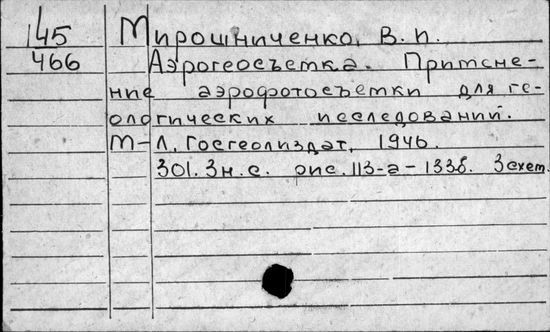 145 Мирошниченко, В. П.
466 Аэрогеосъемка. Примене-
ние аэрофотосъемки для ге-
ологических исследований.
М-Л. Госгеолиздат, 1946.
301. 3 н. с. рис. 113-а - 133б. 3 схем.